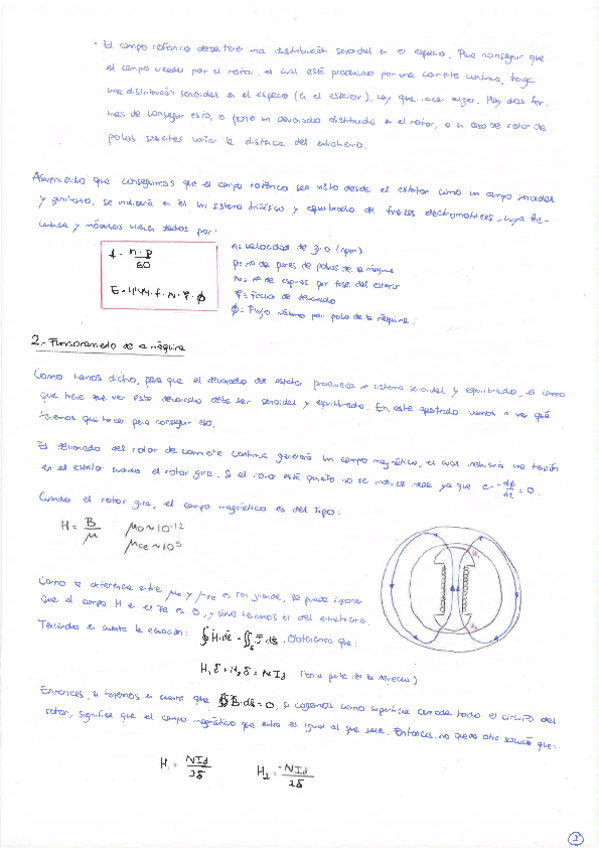 · El campo rotórico debe tener una distribución senoidal en el espacio. Para conseguir que
el campo creado por el rotor, el cual está producido por una corriente continua, tenga
una distribución senoidal en el espacio (en el exterior), hay que hacer algo. Hay dos for-
mas de conseguir esto, o poner un devanado distribuido en el rotor, o en caso de rotor de
polos salientes variar la distancia del entrehierro.
Asumiendo que conseguimos que el campo rotórico sea visto desde el estator como un campo senoidal
y giratorio, se inducirá en él un sistema trifásico y equilibrado de fuerzas electromotrices, cuya fre-
cuencia y módulos vienen dados por:
f = n·p/60
E = 4'44·f·N·φ
n = velocidad de giro (rpm)
p = nº de pares de polos de la máquina
N = nº de espiras por fase del estator
= factor de devanado
φ = Flujo máximo por polo de la máquina.
2.- Funcionamiento de la máquina
Como hemos dicho, para que el devanado de estator produzca un sistema senoidal y equilibrado, el campo
que tiene que ver este devanado debe ser senoidal y equilibrado. En este apartado vamos a ver qué
tenemos que hacer para conseguir eso.
El devanado del rotor de corriente continua generará un campo magnético, el cual inducirá una tensión
en el estator cuando el rotor gira. Si el rotor está quieto no se induce nada ya que e = -dφ/dt = 0.
Cuando el rotor gira, el campo magnético es del tipo:
H = B/μ μ0 ~ 10^-12
μFe ~ 10^5
Como la diferencia entre μ0 y μFe es tan grande, se puede suponer
que el campo H en el Fe es 0, y sólo tenemos el del entrehierro.
Teniendo en cuenta la ecuación: ∮H·dl = ∬J·ds. Obtenemos que:
H1 δ + H2 δ = N Id
Entonces, si tenemos en cuenta que ∯B·ds = 0, si cogemos como superficie cerrada todo el circuito del
rotor, significa que el campo magnético que entra es igual al que sale. Entonces no queda otra solución que:
H1 = NId/2δ H2 = -NId/2δ